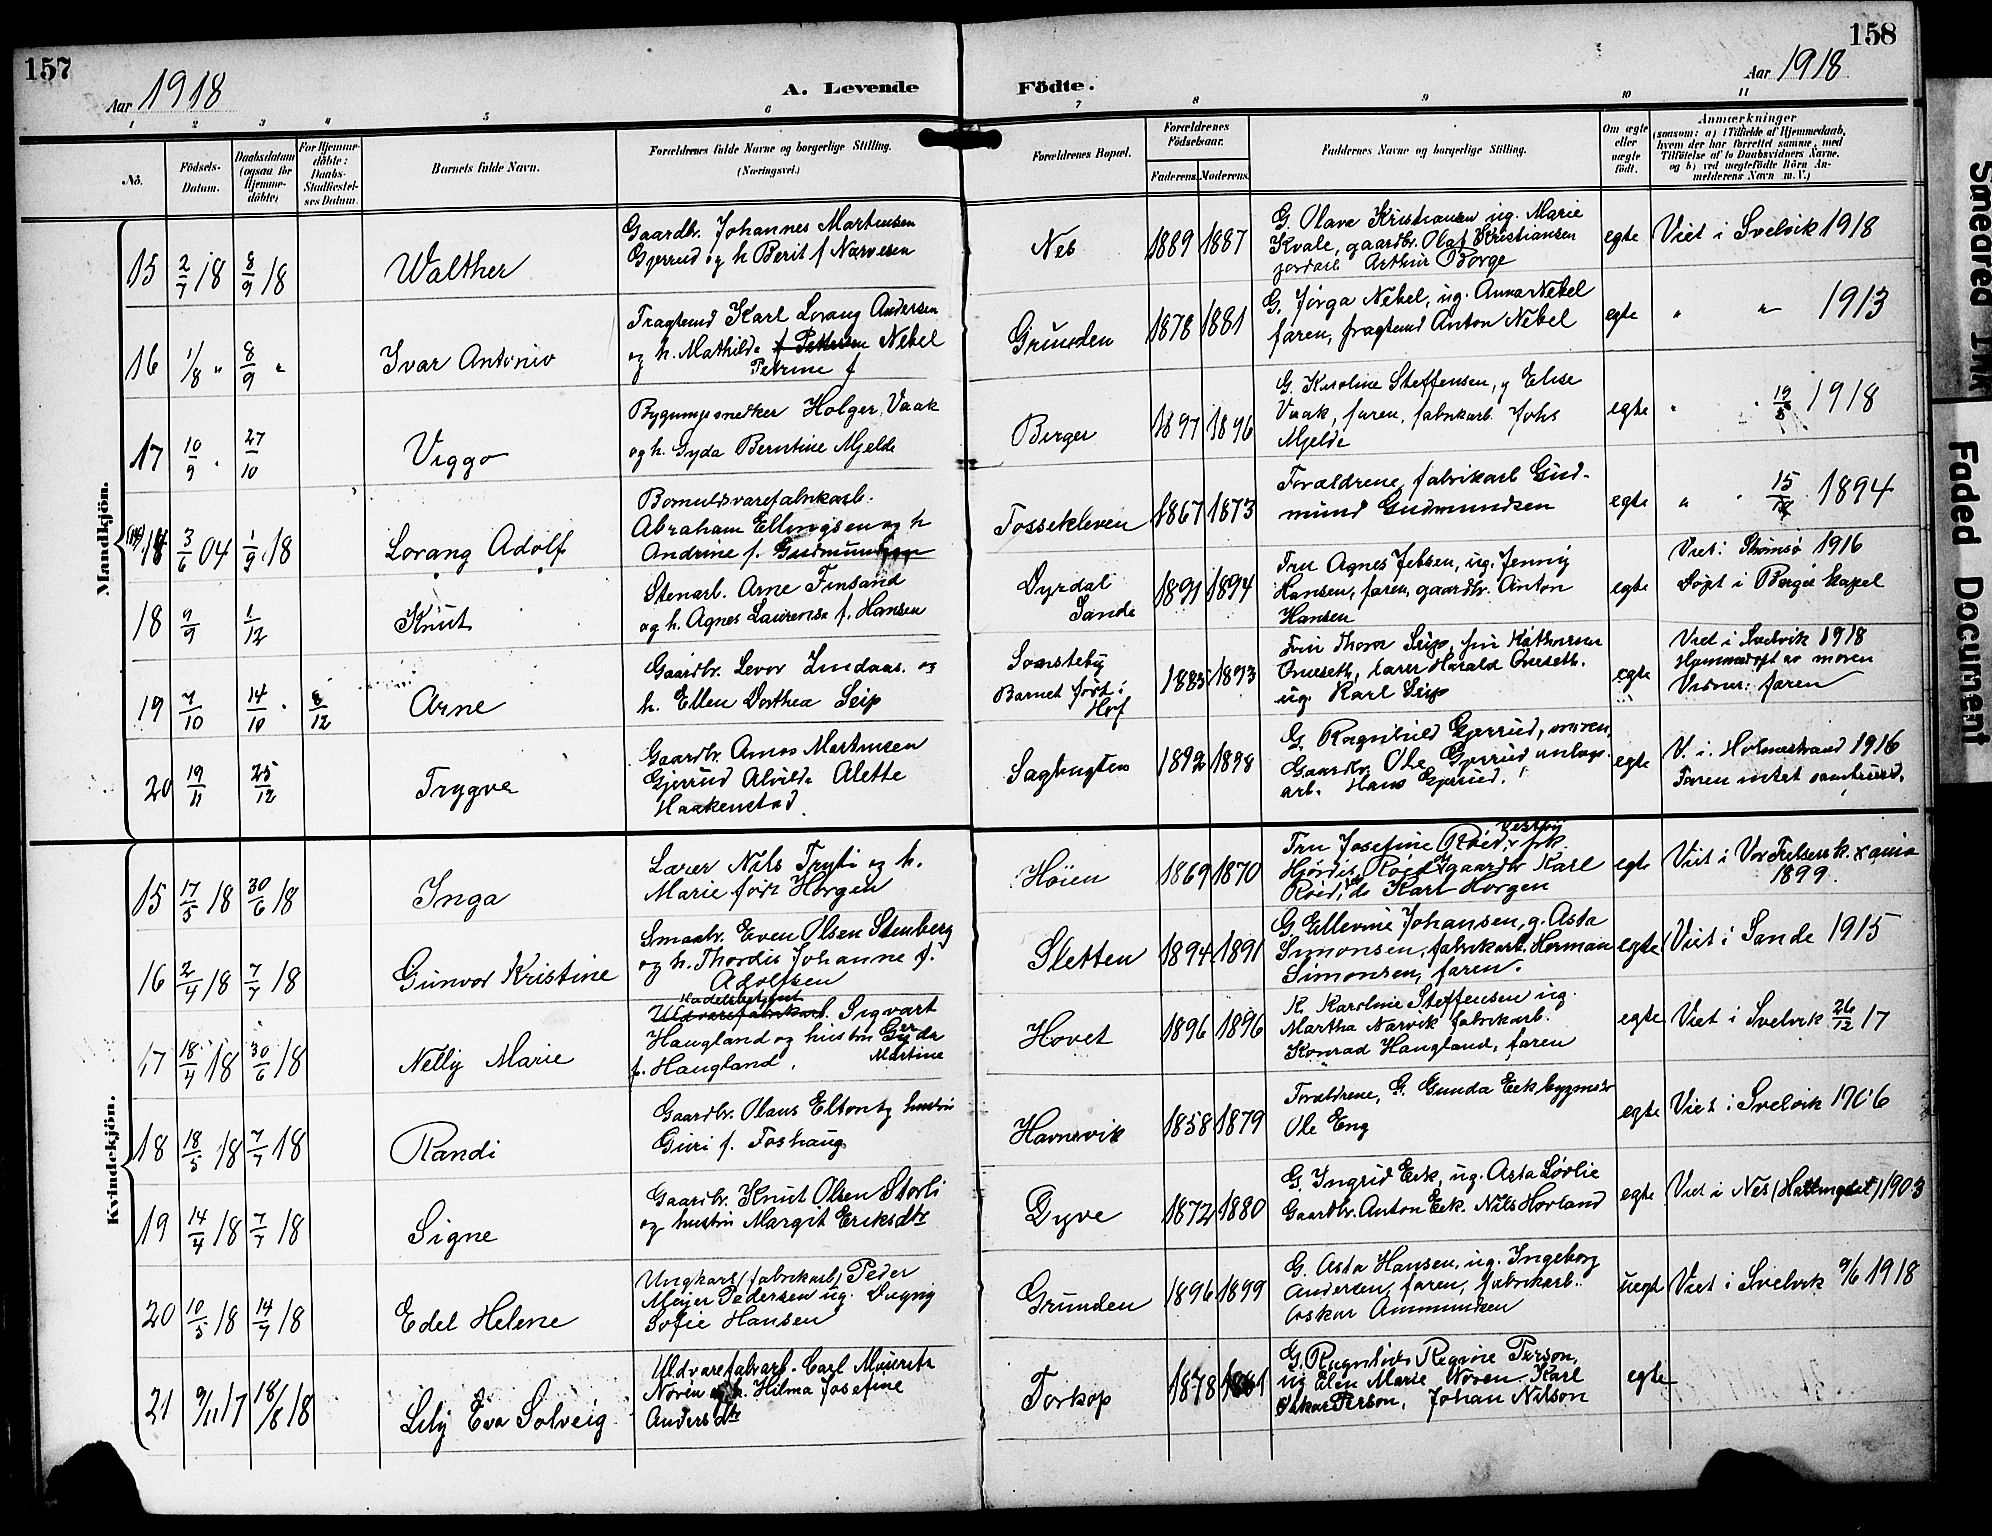 157
158
Aar 1918
A. Levende
Födte.
Aar 1918
1 2 3 4 5 6 7 8 9 10 11
No.
Födsels-
Datum.
Daabsdatum
(ogsaa for
Hjemme-
döbte)
For Hjemme-
döbte:
Daabs-
Stadfæstel-
ses Datum.
Barnets fulde Navn.
Forældrenes fulde Navne og borgerlige Stilling.
(Næringsvei.)
Forældrenes Bopæl.
Forældrenes
Födselsaar.
Faderens. Moderens.
Faddernes Navne og borgerlige Stilling.
Om ægte
eller
uægte
födt.
Anmærkninger
(saasom: a) i Tilfælde af Hjemmedaab,
hvem der har forrettet samme, med
Tilföielse af to Daabsvidners Navne,
og b) ved uægtefödte Börn An-
melderens Navn m. V.)
Mandkjön.
15 2/7 18 8/9 18 Walther
Gaardbr. Johannes Martinsen
Gjerrud og h Berit f Narvesen
Nes 1889 1887
G. Olave Kristiansen ug. Marie
Kvale, gaardbr. Olaf Kristiansen
Arthur Borge
egte Viet i Svelvik 1918
16 1/8 " 8/9 " Ivar Antonio
Fragtemd Karl Lorang Andersen
og h. Mathilde f Pettersen Nebel
Petrine f
Grunden 1878 1881
G. Jørga Nebel, ug. Anna Nebel
faren, fragtemd Anton Nebel
egte " " 1913
17 10/9 " 27/10 Viggo
Holger Vaak
og h. Gyda Berntine Mjelde
Berger 1897 1896
G. Karoline Steffensen, g Elise
Vaak, faren, fabrikarb. Johs
Mjelde
egte " " 19/5 1918
3/6 04 1/9 18 Lorang Adolf
Bomuldsvarefabrikarb.
Abraham Ellingsen og h
Andrine f. Gudmundsen
Fossekleven 1867 1873
Forældrene, fabrikarb Gud-
mund Gudmundsen
egte " " 15/ 1894
18 9/9 1/12 Knut
Stenarb. Arne Finsand
og h. Agnes Laurense f. Hansen
Dyrdal
Sande 1891 1894
Fru Agnes Jebsen, ug. Jenny
Hansen, faren, gaardbr. Anton
Hansen
egte Viet i Strømsø 1916
Døpt i Berger kapel
19 7/10 14/10 " 8/12 Arne
Gaardbr. Levor Lindaas og
h. Ellen Dorthea Seip
Barnet født i
Hof 1885 1893
Fru Thora Seip, fru Katharina
Overseth, lærer Harald Overseth.
ug. Karl Seip
egte Viet i Svelvik 1918
Hjemmedøpt av moren
Vidner: faren
20 19/11 25/12 Trygve
Gaardbr. Amos Martinsen
Gjerrud Alvilde Alette
Haakenstad.
Sagbugten 1892 1898
G. Ragnhild Gjerrud, moren,
Gaardbr. Ole Gjerrud anlægs
arb. Hans Gjerrud.
egte V. i. Holmestrand 1916
Faren intet samfund.
Kvindekjön.
15 17/5 18 30/6 18 Inga
Lærer Nils Tryti og h.
Marie født Horgen
Höien 1869 1870
Fru Josefine Röed, Vestby frk.
Hjördis Röed og gaardbr Karl
Röed, do Karl Horgen
egt Viet i Vor Frelsers k. Xania
1899.
16 2/4 18 7/7 18 Gunvor Kristine
Smaabr. Even Olsen Stenberg
og h. Thordis Johanne f.
Adolfsen
Sletten 1894 1891
G. Ellevine Johansen, g. Asta
Simonsen, fabrikarb. Herman
Simonsen, faren.
egte Viet i Sande 1915
17 18/4 18 30/6 18 Nelly Marie
Uldvarefabrikarb. Sigvart
Haugland og hustru Gyda
Martine
f. Haugland.
Hovet 1896 1896
K. Karoline Steffensen ug.
Martha Narvik fabrikarb.
Konrad Haugland, faren
egte Viet i Svelvik 26/12 17
18 18/5 18 7/7 18 Randi
Gaardbr. Olaus Elton og hustru
Guri f. Foshaug
Havnevik 1858 1879
Forældrene, G. Gunda Eek bygmstr
Ole Eng
egte Viet i Svelvik 1906
19 14/4 18 7/7 18 Signe
Gaardbr. Knut Olsen Storli
og hustru Margit Eriksdtr
Dyve 1872 1880
G. Ingrid Eek, ug. Asta Lövlie
Gaardbr. Anton Eek. Nils Hovland
egte Viet i Nes (Hallingdal) 1903
20 10/5 18 14/7 18 Edel Helene
Ungkarl (fabrikarb) Peder
Meyer Pedersen ug. Dagny
Sofie Hansen
Grunden 1896 1899
G. Asta Hansen, ug. Ingeborg
Andersen, faren, fabrikarb.
Oskar Ammundsen
uegt Viet i Svelvik 9/6 1918
21 9/11 17 18/8 18 Lily Eva Solveig
Uldvarefabrarb. Carl Mauritz
Noren og h. Hilma Josefine
Andersdtr
Torkop 1878
G. Regine Person,
ug Elin Marie Noren Karl
Oskar Person, Johan Nilson
egte
Smeared Ink
Faded Document